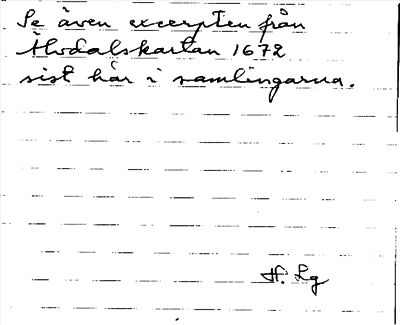 Se även excerpten från
Älvdalskartan 1672
sist här i samlingarna.
H. Lg